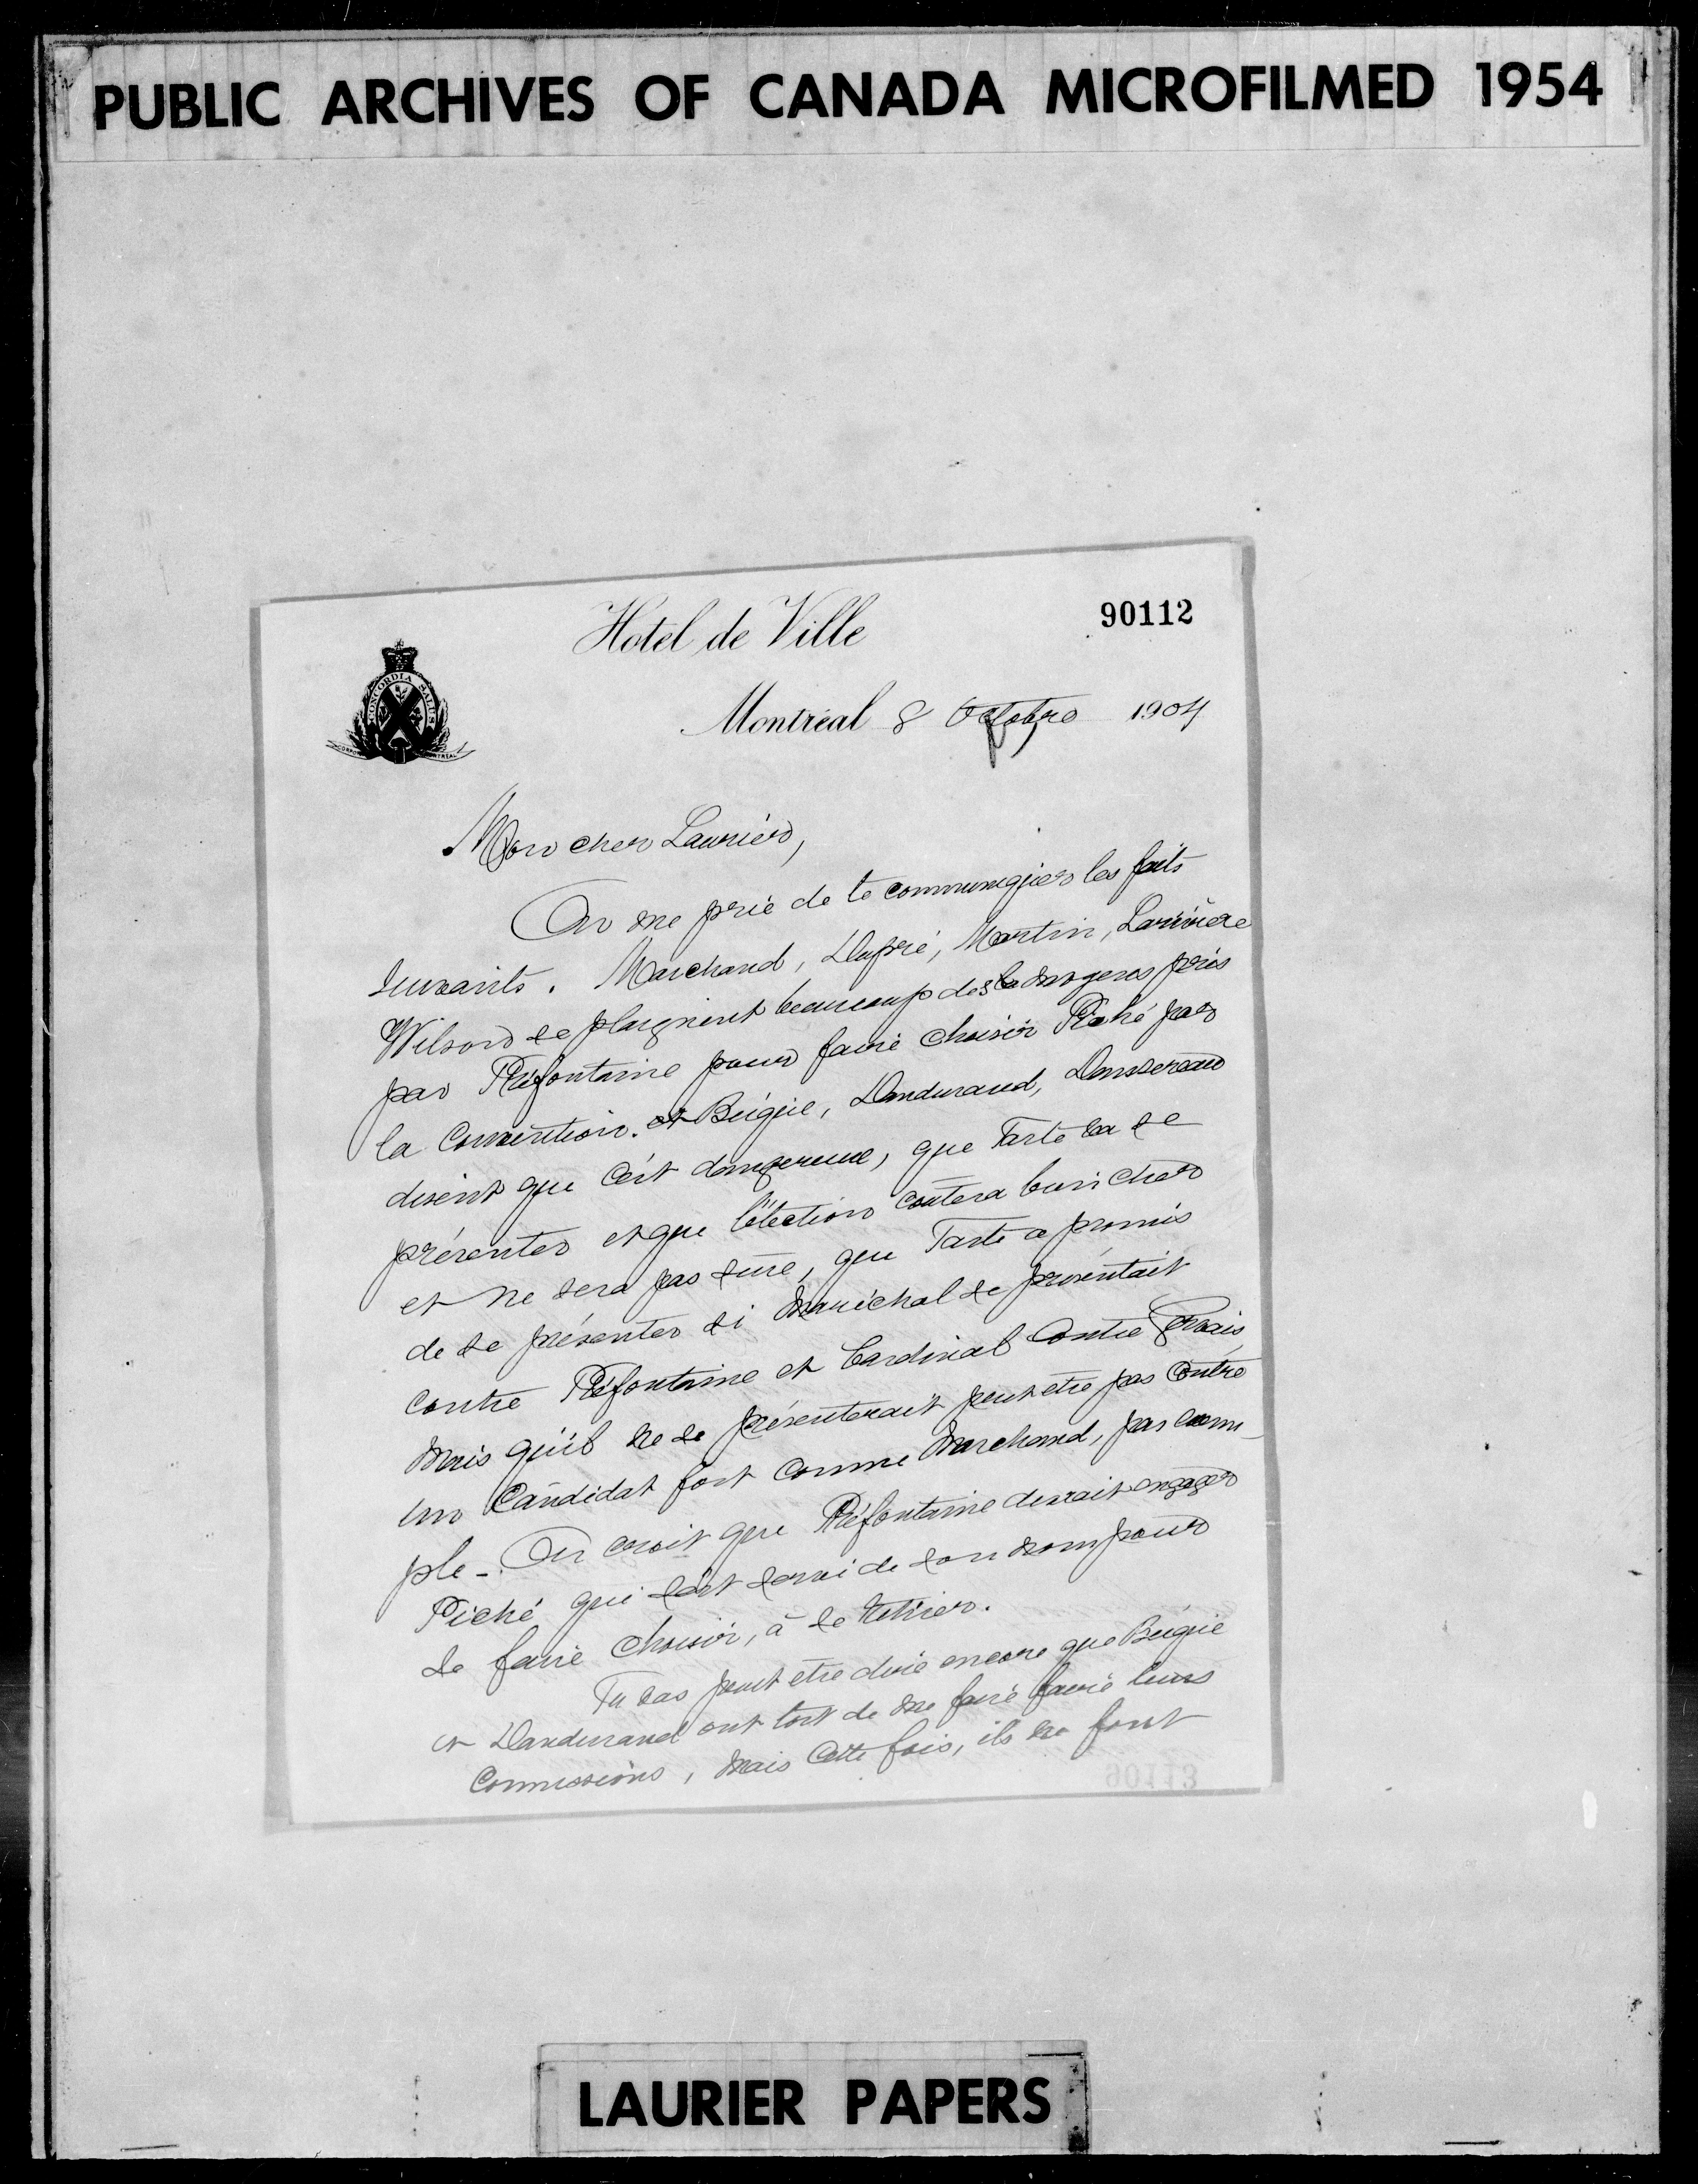 PUBLIC ARCHIVES OF CANADA MICROFILMED 1954
Hotel de Ville
90112
CONCORDIA SALUS
Montréal 8 Octobre 1904
Mon cher Laurier,
On me prie de te communiquer les faits
suivants. Marchand, Dupré, Martin, Larivière
Wilson se plaignent beaucoup des moyens pris
par Préfontaine pour faire choisir Piché par
la Convention. et Béique, Dandurand, Dansereau
disent que c'est dangereux, que Tarte va se
présenter et que l'élection coûtera bien cher
et ne sera pas sûre, que Tarte a promis
de se présenter si Maréchal se présentait
contre Préfontaine et Cardinal contre Gervais,
mais qu'il ne se présenterait peut etre pas contre
un Candidat fort comme Marchand, par exem-
ple - On croit que Préfontaine devrait engager
Piché qui s'est servi de son nom pour
se faire choisir, à se retirer.
Tu vas peut etre dire encore que Béique
et Dandurand ont tort de me faire faire leurs
Commissions, mais cette fois, ils ne font
90113
LAURIER PAPERS